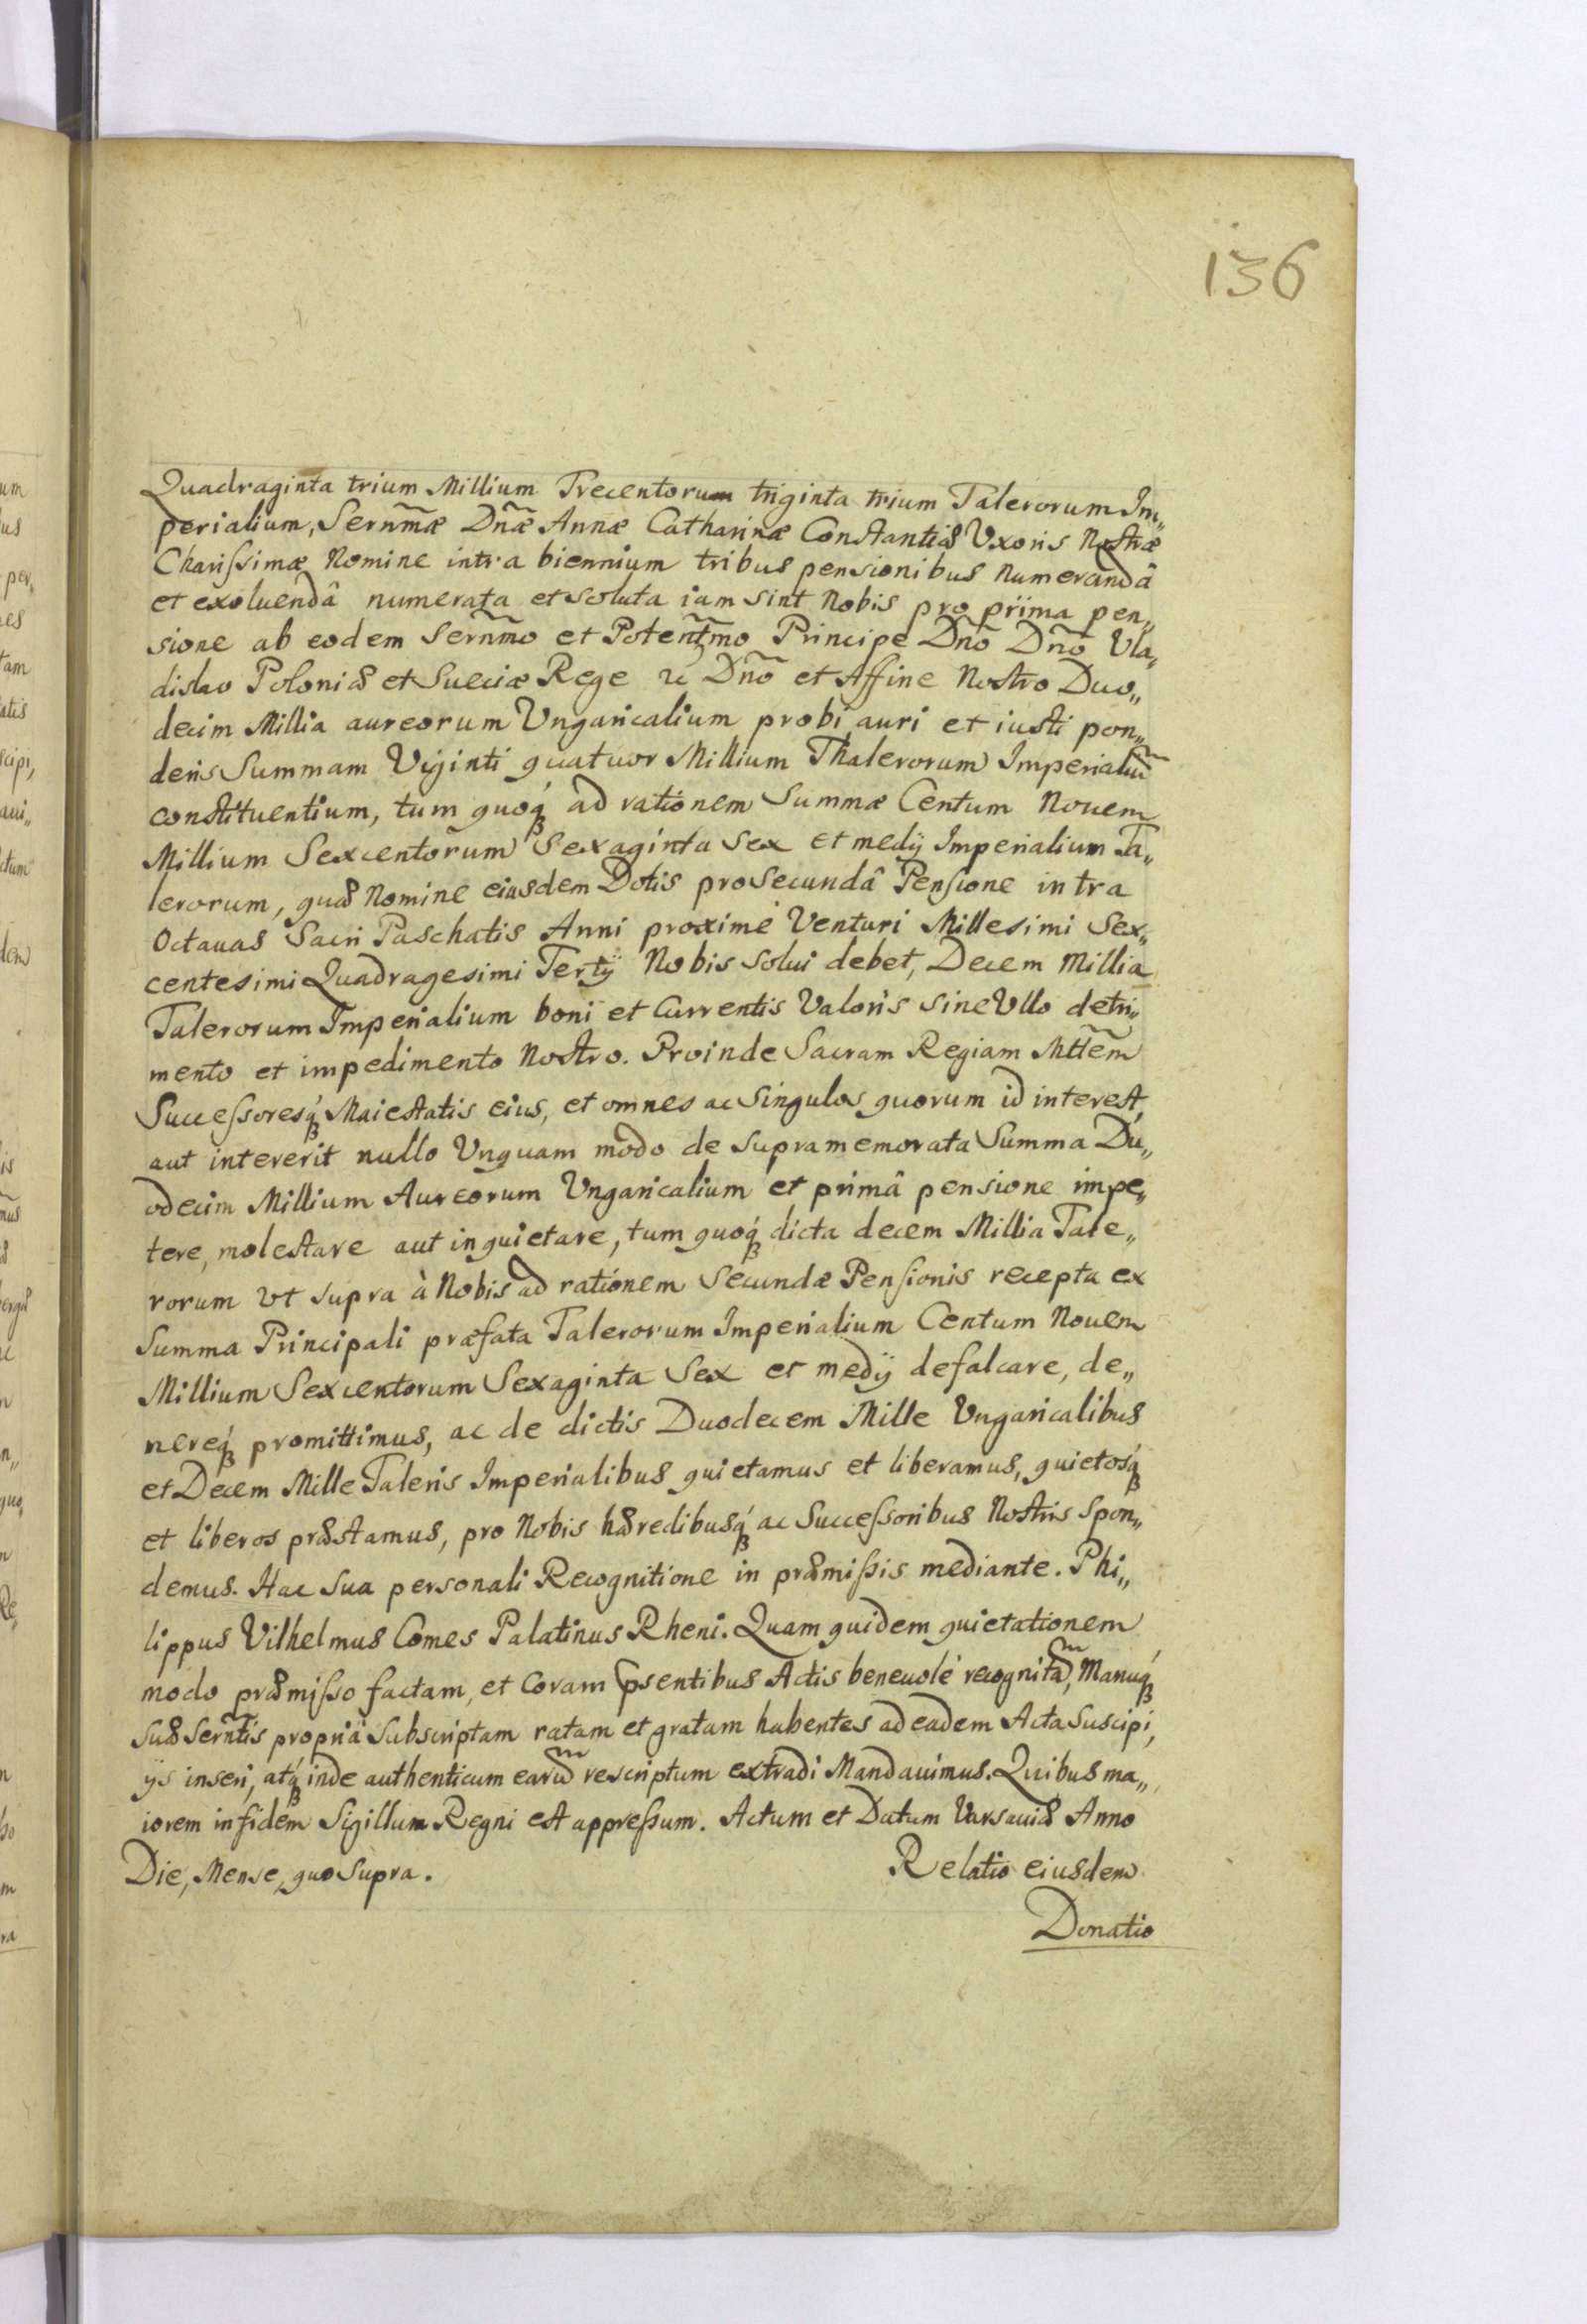 136
Quadraginta trium Millium Trecentorum triginta trium Talerorum Im„
perialium, Sernm̃æ Dnæ̃ Annæ Catharinæ Constantiæ Vxoris Nostræ
Charissimæ Nomine intra biennium tribus pensionibus numerandâ
et exoluendâ numerata et soluta iam sint Nobis pro prima pen„
sione ab eodem Sernm̃o et Potentm̃o Principe Dnõ Dnõ Vla„
dislao Poloniæ et Sueciæ Rege &c Dnõ et Affine Nostro Duo„
decim Millia aureorum Vngaricalium probi auri et iusti pon„
deris Summam Viginti quatuor Millium Thalerorum Imperialiũ
constituentium, tum quoq́ ad rationem Summæ Centum Nouem
Millium Sexcentorum Sexaginta Sex et medij Imperialium Ta„
lerorum, quæ Nomine eiusdem Dotis pro Secundâ Pensione intra
Octauas Sacri Paschatis Anni proximè Venturi Millesimi Sex„
centesimi Quadragesimi Tertij Nobis Solui debet, Decem Millia
Talerorum Imperialium boni et Currentis Valoris sine Vllo detri„
mento et impedimento Nostro. Proinde Sacram Regiam Mttẽm
Successoresq́ Maiestatis eius, et omnes ac Singulos quorum id interest,
aut intererit nullo Vnquam modo de supramemorata Summa Du„
odecim Millium Aureorum Vngaricalium et primâ pensione impe„
tere, molestare aut inquietare, tum quoq́ dicta decem Millia Tale„
rorum vt supra à Nobis ad rationem Secundæ Pensionis recepta ex
Summa Principali præfata Talerorum Imperialium Centum Nouem
Millium Sexcentorum Sexaginta Sex et medij defalcare, de„
nereq́ promittimus, ac de dictis Duodecem Mille Vngaricalibus
et Decem Mille Taleris Imperialibus quietamus et liberamus, quietosq́
et liberos præstamus, pro Nobis hæredibusq́ ac Successoribus Nostris Spon„
demus. Hac Sua personali Recognitione in præmissis mediante. Phi„
lippus Vilhelmus Comes Palatinus Rheni. Quam quidem quietationem
modo præmisso factam, et Coram psentibus Actis beneuolè recognitã, Manuq́
suæ Serntĩs propriâ Subscriptam ratam et gratam habentes ad eadem Acta Suscipi,
ijs inseri, atq́ inde authenticum earũ rescriptum extradi Mandauimus. Quibus ma„
iorem in fidem Sigillum Regni est appressum. Actum et Datum Varsauiæ Anno
Die, Mense, quo Supra. Relatio eiusdem
Donatio